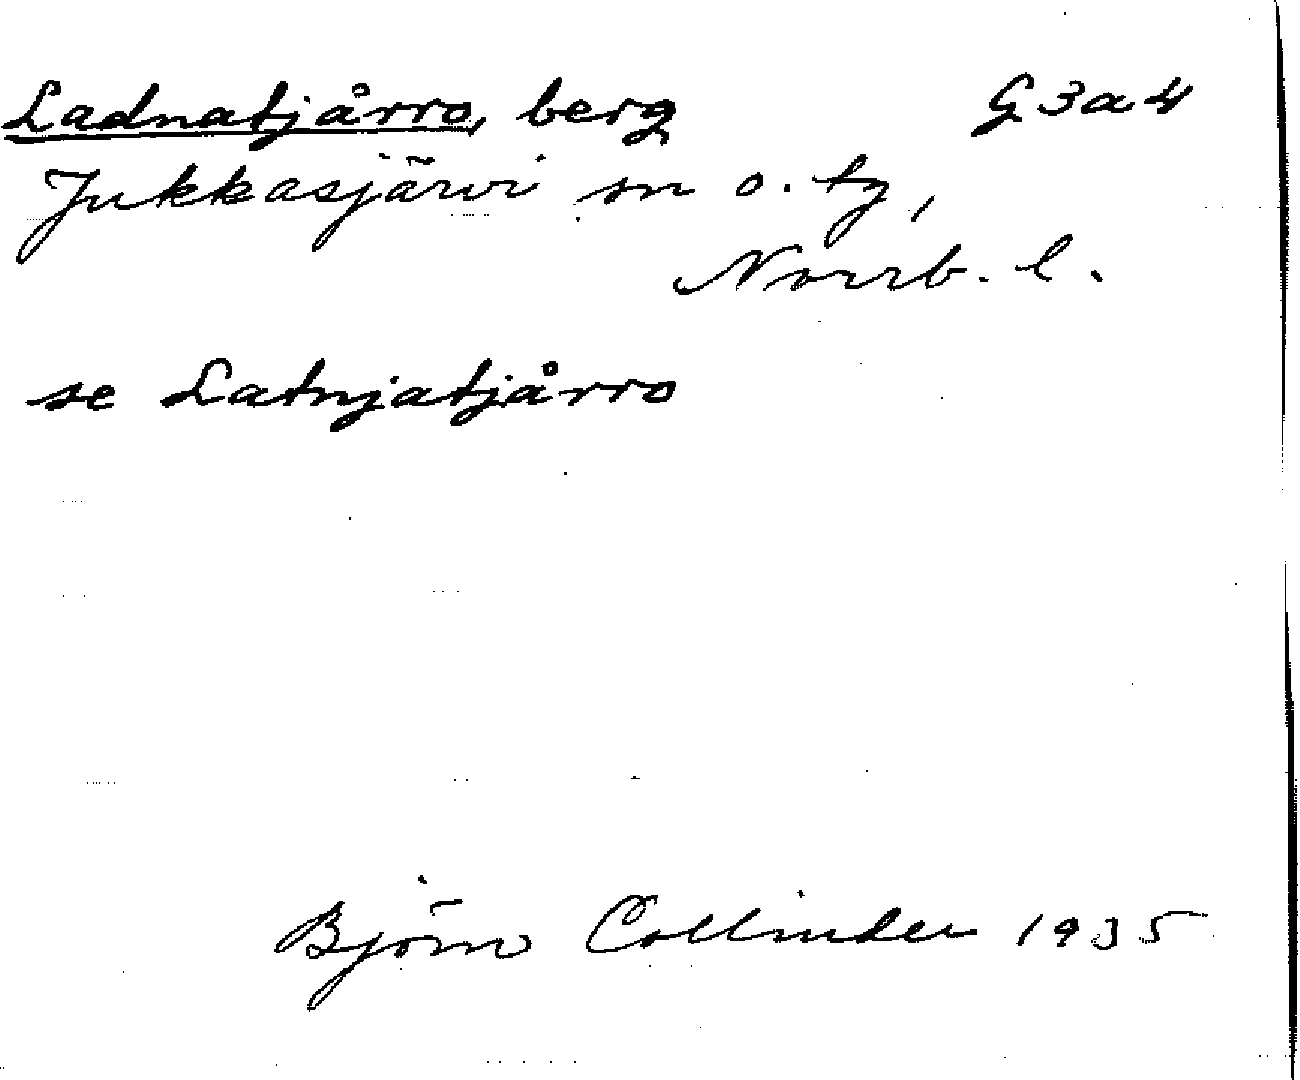 Ladnatjårro, berg G3a4
Jukkasjärvi sn o. tg,
Norrb. l.
se Latnjatjårro
Björn Collinder 1935